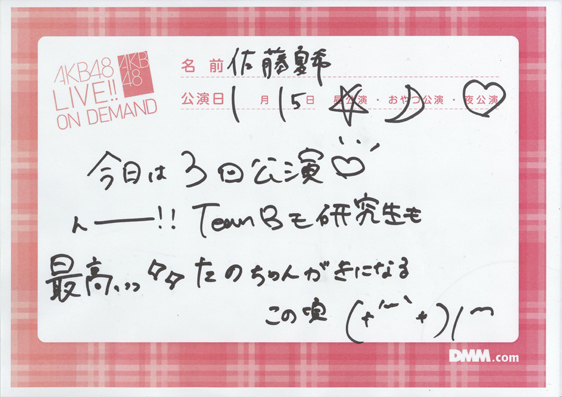 AKB48
LIVE!!
ON DEMAND
AKB
48
名前 佐藤夏希
公演日 1月15日 昼公演・おやつ公演・夜公演
今日は3回公演♡
ん――!! TeamBも研究生も
最高、、、タタたのちゃんがきになる
この頃 (+´ー`+)/~
DMM.com